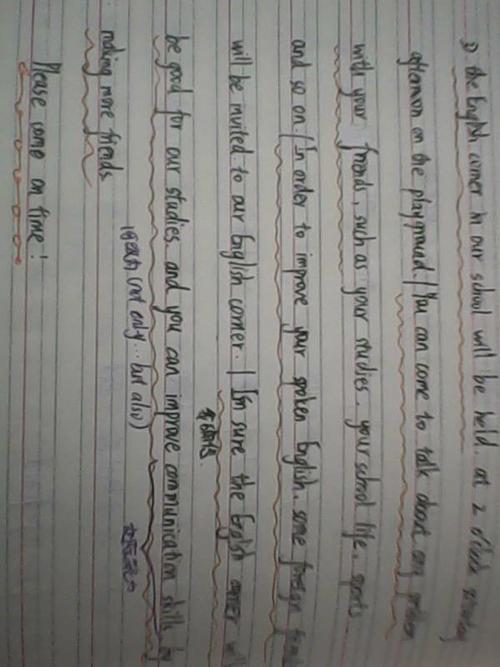 ① the English corner in our school will be held. at 2 o'clock saturday
afternoon on the playground. / You can come to talk about any problem
with your friends, such as your studies. your school life. sports
and so on. / In order to improve your spoken English. some foreign
will be invited to our English corner. / I'm sure the English corner will
be good for our studies. and you can improve communication skills by
(not only... but also)
making more friends
Please come on time!